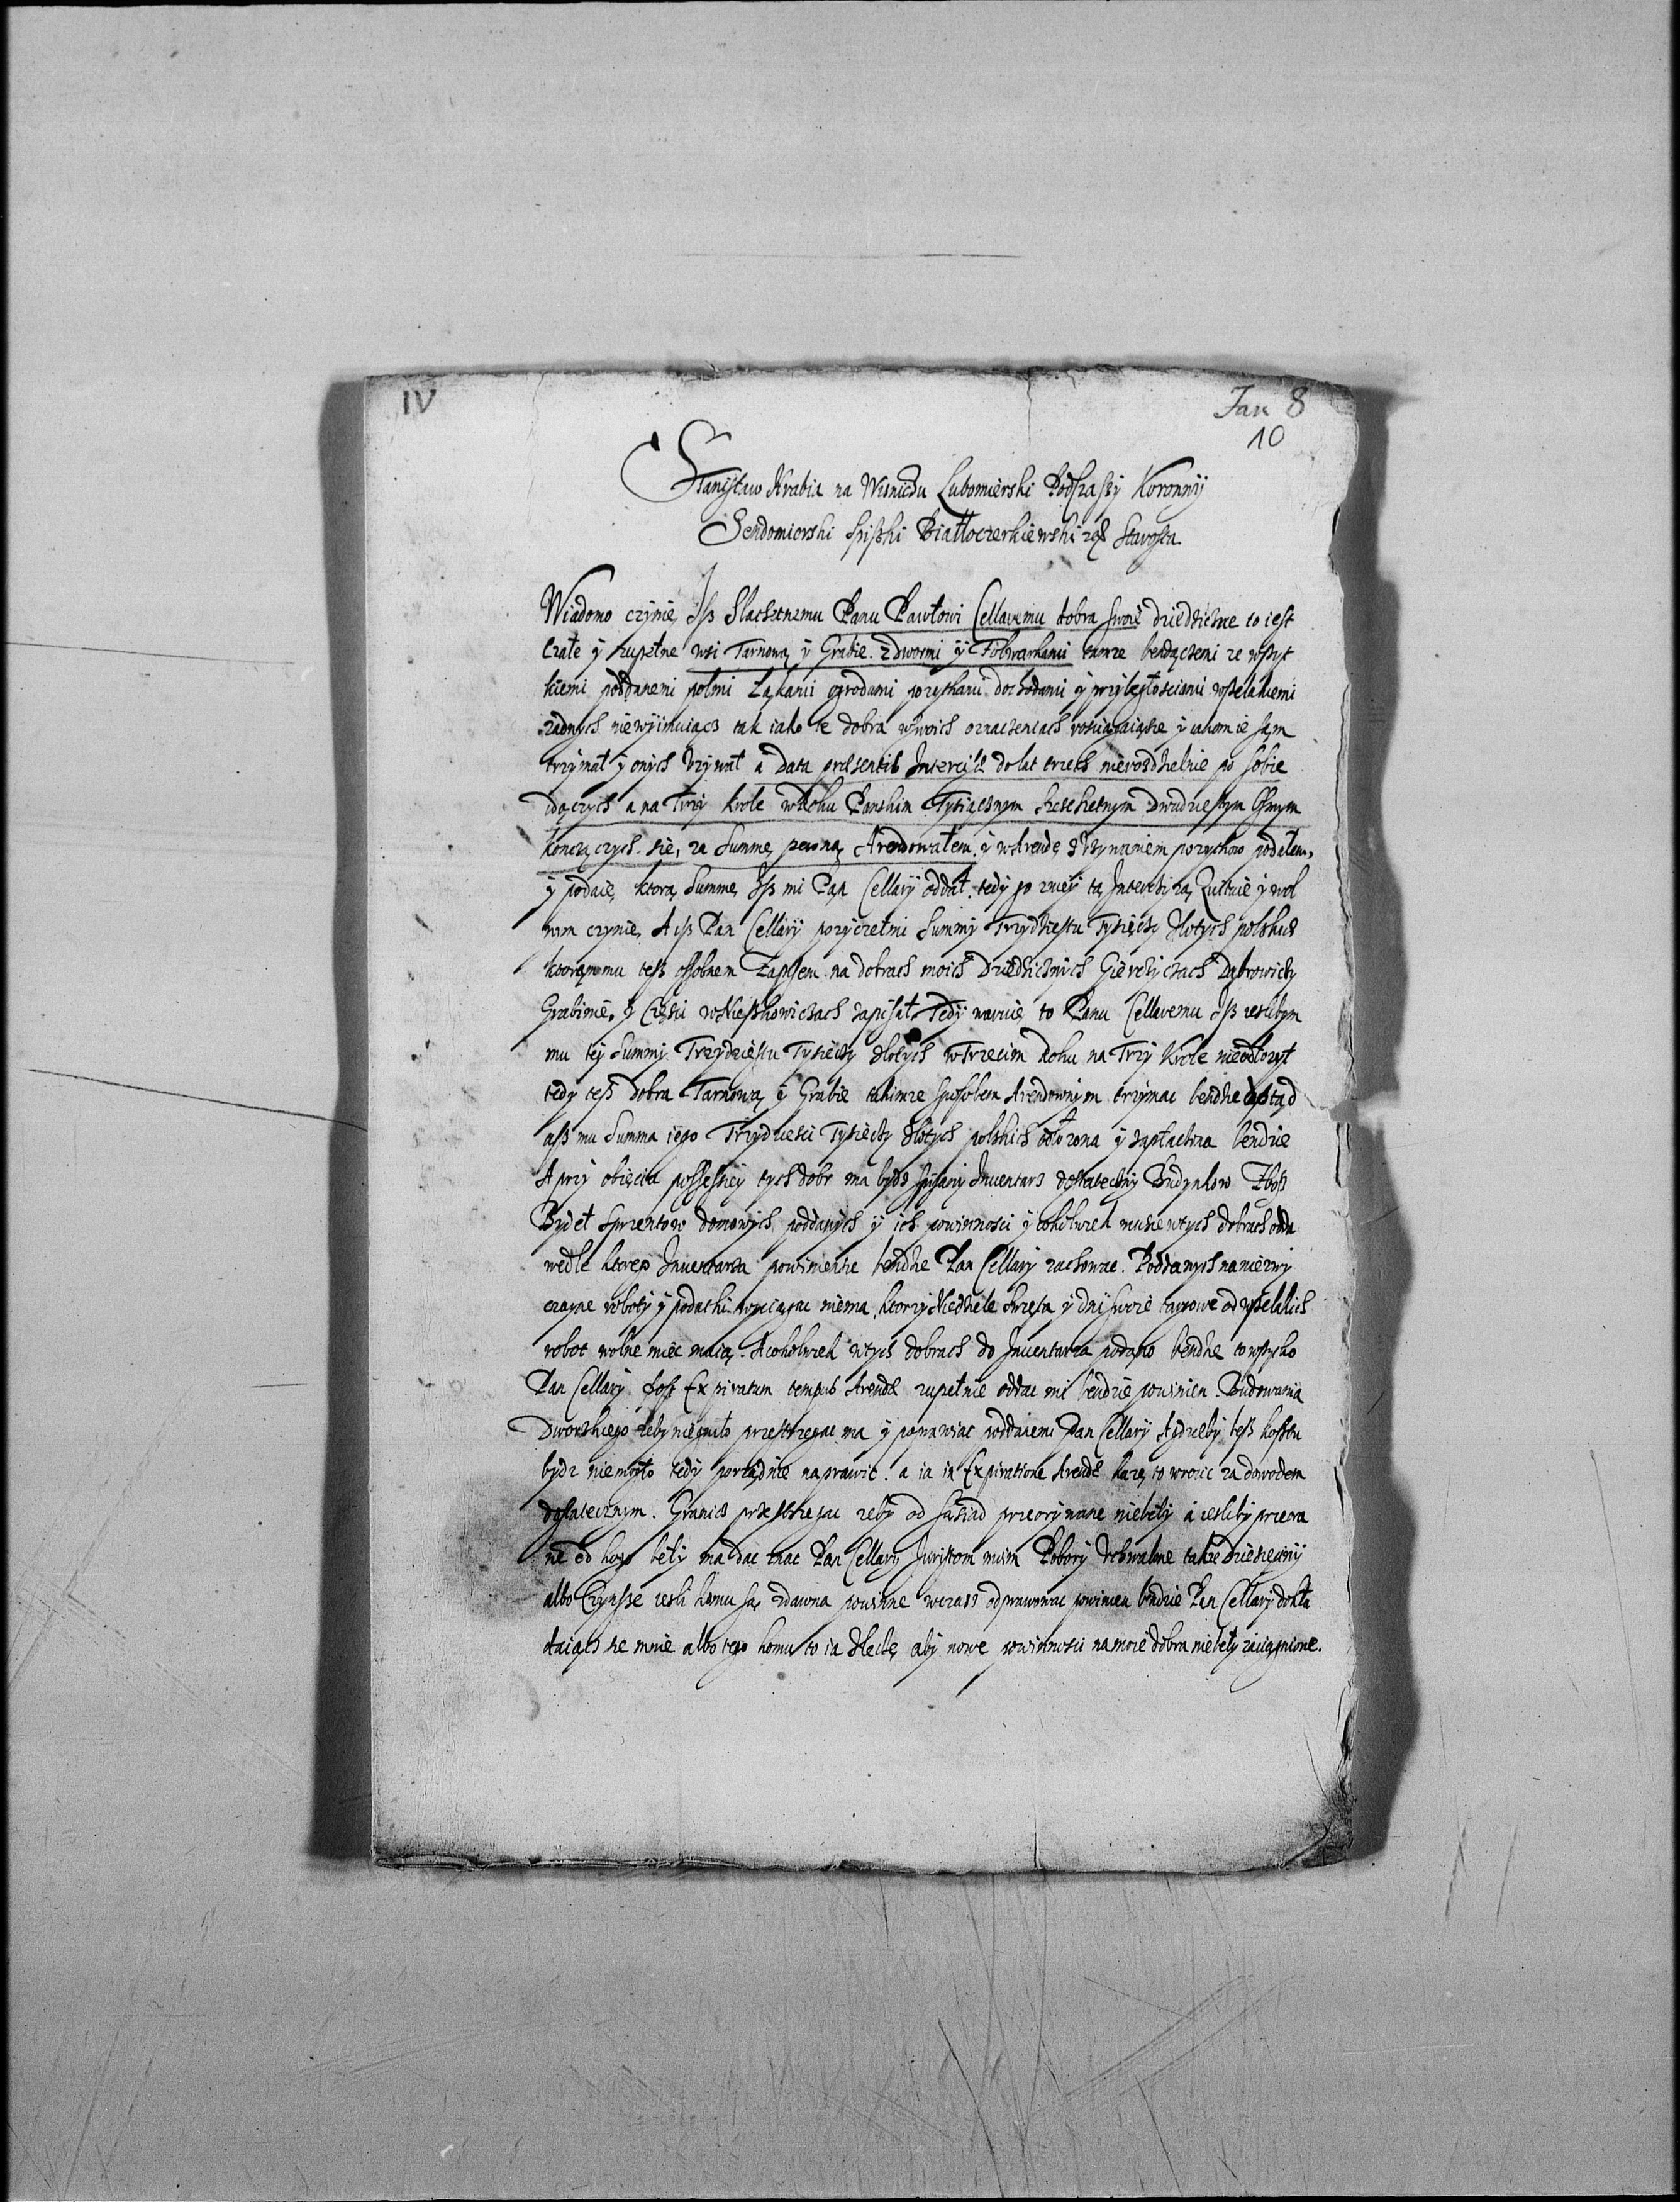 IV
Jan 8
10
Stanisław Hrabia na Wisniczu Lubomierski Podczaszy Koronny
Sendomierski Spiski Białłoczerkiewski etc Starosta
Wiadomo czynię, Isz Slachetnemu Panu Pawłowi Cellaremu dobra swoie dziedziczne to iest
Czałe y zupełne wsi Tarnowa y Grabie. z dwormi y Folwarkami tamze bendączemi ze wszyt
kiemi poddanemi polmi Ląkami ogrodami pozytkami dochodami y przyległosciami wszelakiemi
zadnych niewyimuiącz tak iako te dobra w swoich oznaczeniach rosciągaiąsze y iakom ie sam
trzymał y onych Vzywał a Data presentis Intercizae do lat trzech nierozdzielnie po sobie
idączych a na Trzy Krole w Roku Panskim Tysiącznym szeschetnym Dwudziestym Osmym
kończączych się, za Summę pewną Arendowałem. y w Arendę z Vzywaniem pozytkow podałem,
y podaię, ktorą Summę Isz mi Pan Cellary oddał. tedy go z niey tą Intercizą Quituię y wol
nem czynię, A isz Pan Cellary pozyczełmi Summy Trzydziestu Tysięcy Złotych polskich
ktorąmmu tesz osobnem Zapisem na dobrach moich Dziedzicznych Gierczyczach Dąbrowicy
Grabinie, y Części w Nieszkowiczach zapisał. Tedy waruię to Panu Cellaremu Isz ieslibym
mu tey Summy Trzydziestu Tysięcy złotych w Trzecim Roku na Trzy Krole nieodłozył
tedy tesz dobra Tarnowa y Grabie takimze sposobem Arendownym trzymac bendzie
asz mu Summa iego Trzydziesci Tysięcy złotych polskich odłozona y zapłaczona bendzie
A przy obięciu possessiey tych dobr ma bydz spisany Inwentarz dostateczny Budynkow Zbosz
Bydeł Sprzentow domowych poddanych y ich powinnosci y cokolwiek musie w tych dobrach odda
wedle ktorego Inwentarza powinien sie bendzie Pan Cellary zachowac. Poddanych na niezwy
czayne roboty y podatki wyciągac niema, ktorzy Niedziele swięta y dni swoie targowe od wszelakich
robot wolne miec maią. A cokolwiek w tych dobrach do Inwentarza podano bendzie to wszytko
Pan Cellary post Expiratum tempus Arendae zupełnie oddac mi bendzie powinien. Budowania
Dworskiego zeby niegniło przestrzegac ma y ponawiac poddaiemi Pan Cellary A gdzieby tesz kosztu
bydz niemogło tedy porządnie naprawic. a ia in Expiratione Arendae karzę to wrocic za dowodem
dostatecznym. Granicz przestrzegac zeby od sąsiad przeorywane niebeły a iesliby przeora
ne od kogo beły ma dac znac Pan Cellary Juristom moim Pobory Vchwalone takze dziesięciny
albo Czynsze iesli komu są zdawna powinne wczasz odprawowac powinien bendzie Pan Cellary dokła
daiącz sie mnie albo tego komu to ia zleczę, aby nowe powinnosci na moie dobra niebeły zaciągnione.